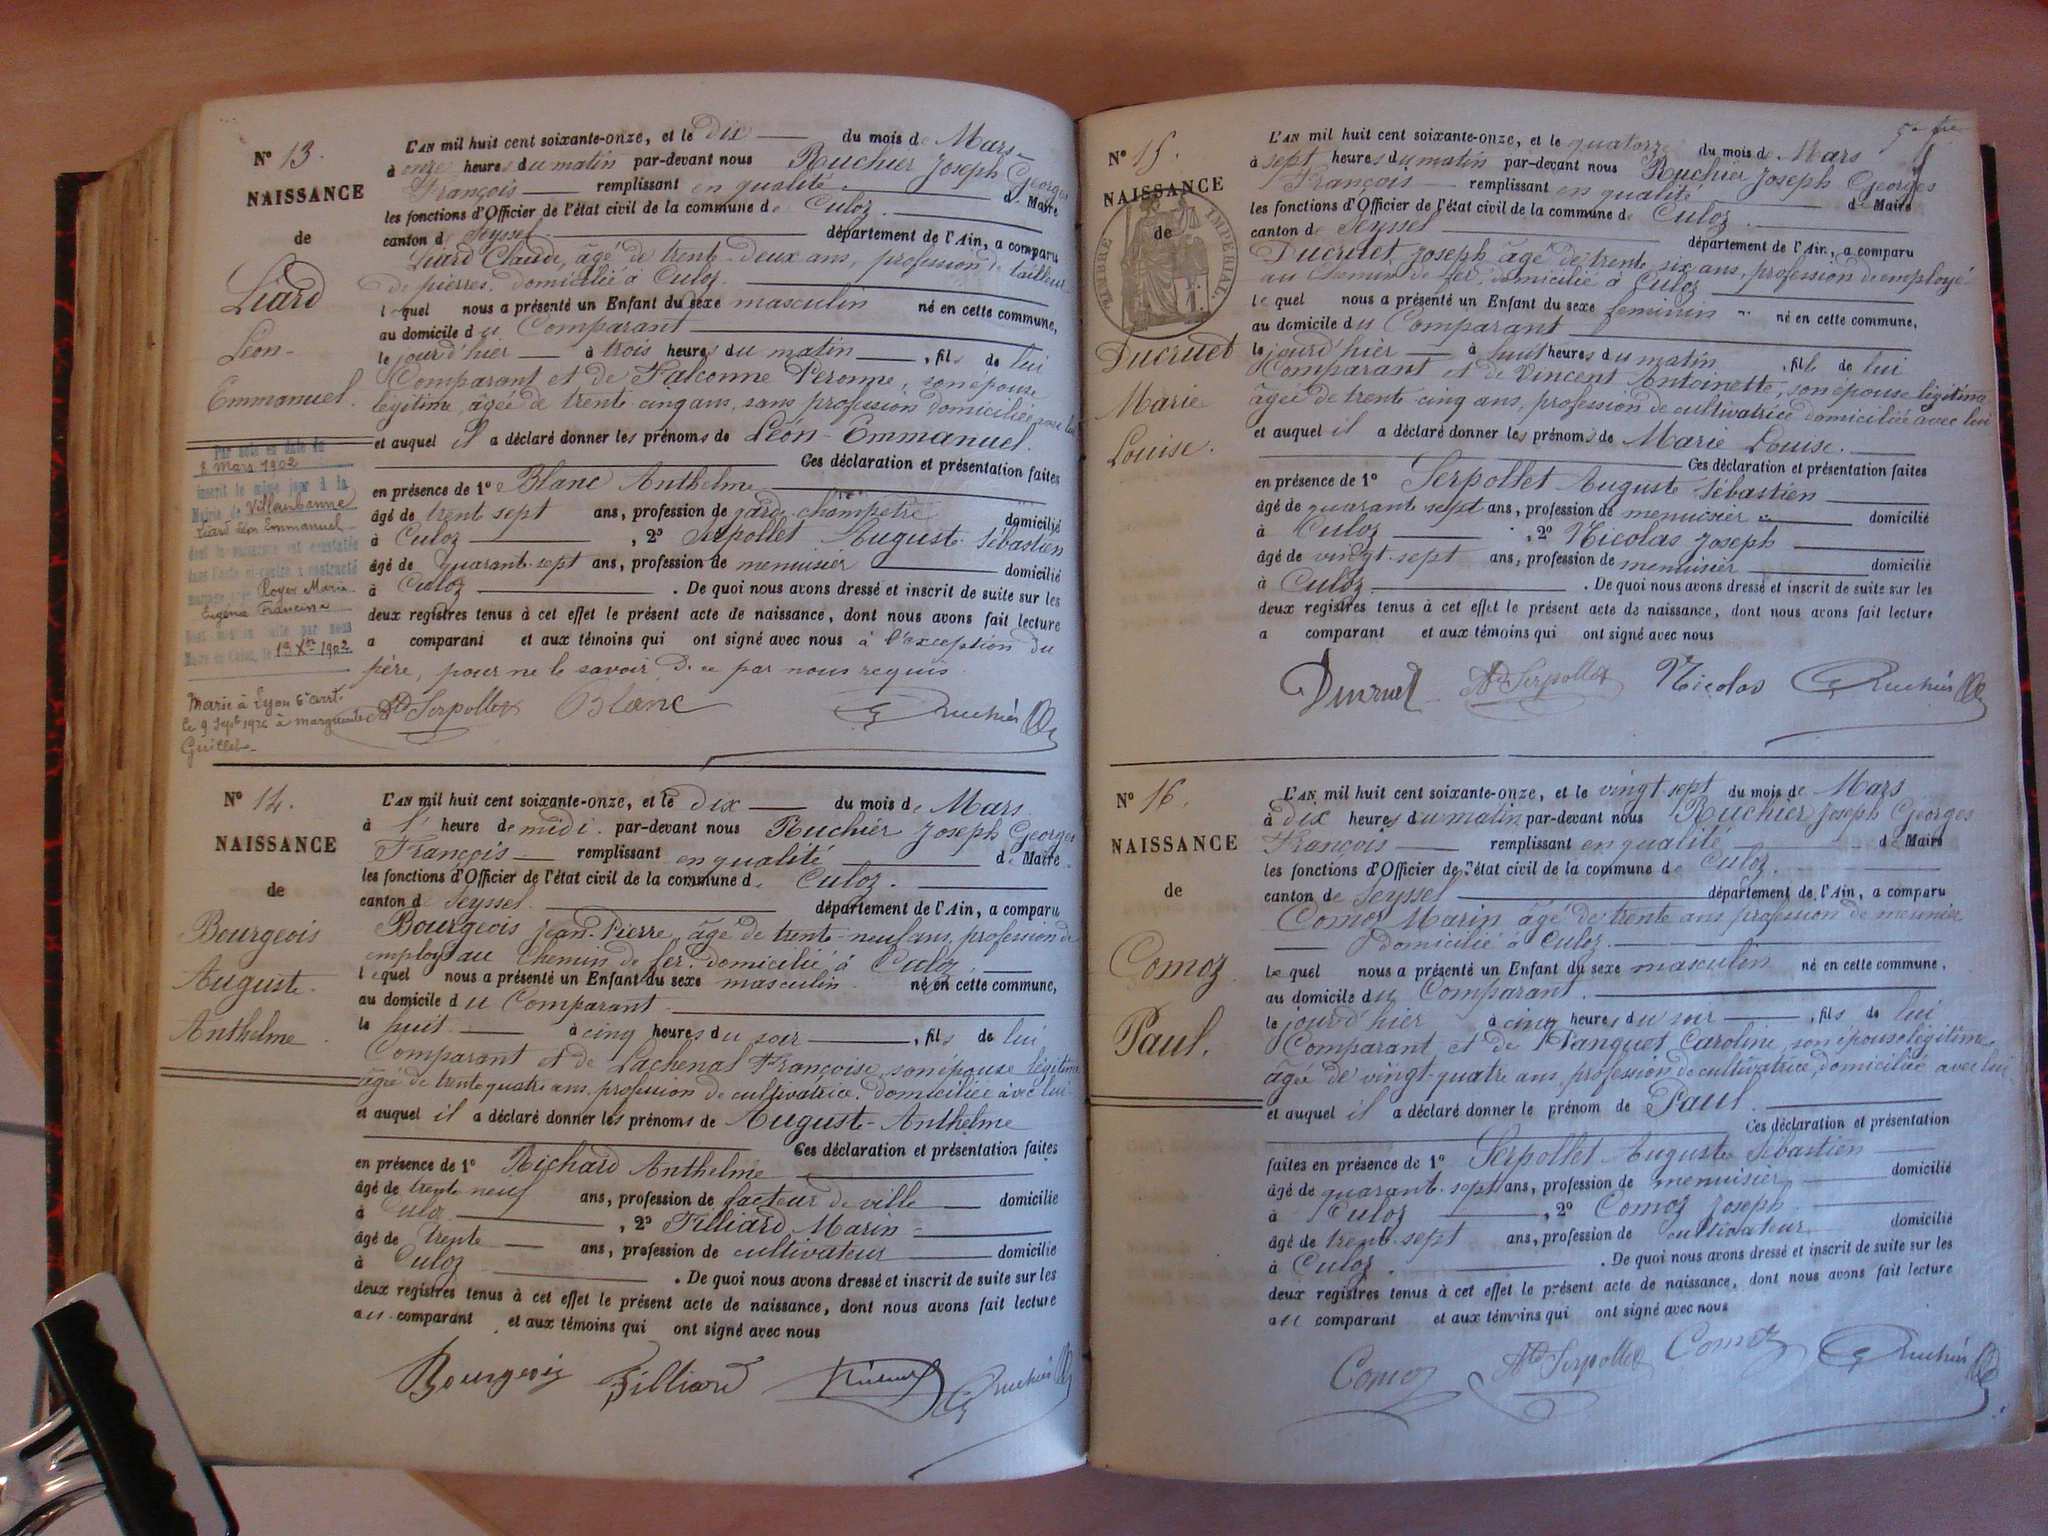 Nº 13.
NAISSANCE
de
Liard
Léon-
Emmanuel.
L'AN mil huit cent soixante-onze, et le dix du mois de Mars
à onze heures du matin par-devant nous Ruchier Joseph Georges
François remplissant en qualité de Maire
les fonctions d'Officier de l'état civil de la commune de Culoz.
canton de Seyssel département de l'Ain, a comparu
Liard Claude, âgé de trente-deux ans, profession de tailleur
de pierres, domicilié à Culoz
lequel nous a présenté un Enfant du sexe masculin né en cette commune,
au domicile du Comparant
le jour d'hier à trois heures du matin, fils de lui
Comparant et de Falconne Peronne, son épouse
légitime, âgée de trente cinq ans, sans profession domiciliée avec lui
et auquel il a déclaré donner les prénoms de Léon-Emmanuel.
Ces déclaration et présentation faites
en présence de 1º Blanc Anthelme
âgé de trent sept ans, profession de garde champêtre domicilié
à Culoz, 2º Serpollet Auguste Sébastien
âgé de quarant-sept ans, profession de menuisier domicilié
à Culoz. De quoi nous avons dressé et inscrit de suite sur les
deux registres tenus à cet effet le présent acte de naissance, dont nous avons fait lecture
a comparant et aux témoins qui ont signé avec nous à l'exception du
père, pour ne le savoir de ce par nous requis
Ate Serpollet Blanc G Ruchier
Par note en date du
8 Mars 1902
inscrit le même jour à la
Mairie de Villeurbanne
Liard Léon Emmanuel
dont la naissance est constatée
dans l'acte ci-contre a contracté
mariage avec Royer Marie
Eugénie Francine
Dont mention faite par nous
Maire de Culoz, le 1er Xbre 1902
Marié à Lyon 6e arrt.
le 9 Sept 1926 à marguerite
Guillet
Nº 14.
NAISSANCE
de
Bourgeois
Auguste
Anthelme
L'AN mil huit cent soixante-onze, et le dix du mois de Mars
à l' heure de midi. par-devant nous Ruchier Joseph Georges
François remplissant en qualité de Maire
les fonctions d'Officier de l'état civil de la commune de Culoz.
canton de Seyssel département de l'Ain, a comparu
Bourgeois Jean-Pierre, âgé de trente-neuf ans, profession de
employé au Chemin de fer, domicilié à Culoz
lequel nous a présenté un Enfant du sexe masculin né en cette commune,
au domicile du Comparant
le huit à cinq heures du soir, fils de lui
Comparant et de Lachenal Françoise, son épouse légitime
âgée de trente quatre ans, profession de cultivatrice, domiciliée avec lui
et auquel il a déclaré donner les prénoms de Auguste-Anthelme
Ces déclaration et présentation faites
en présence de 1º Richard Anthelme
âgé de trente neuf ans, profession de facteur de ville domicilié
à Culoz, 2º Filliard Marin
âgé de trente ans, profession de cultivateur domicilié
à Culoz. De quoi nous avons dressé et inscrit de suite sur les
deux registres tenus à cet effet le présent acte de naissance, dont nous avons fait lecture
au comparant et aux témoins qui ont signé avec nous
Bourgeois Filliard G Ruchier
5e fre
Nº 15.
NAISSANCE
de
TIMBRE IMPÉRIAL
Ducruet
Marie
Louise.
L'AN mil huit cent soixante-onze, et le quatorze du mois de Mars
à sept heures du matin par-devant nous Ruchier Joseph Georges
François remplissant en qualité de Maire
les fonctions d'Officier de l'état civil de la commune de Culoz
canton de Seyssel département de l'Ain, a comparu
Ducruet Joseph âgé de trente six ans, profession de employé
au Chemin de fer, domicilié à Culoz
lequel nous a présenté un Enfant du sexe feminin né en cette commune,
au domicile du Comparant
le jour d'hier à huit heures du matin, fille de lui
Comparant et de Vincent Antoinette, son épouse légitime
âgée de trente cinq ans, profession de cultivatrice domiciliée avec lui
et auquel il a déclaré donner les prénoms de Marie Louise.
Ces déclaration et présentation faites
en présence de 1º Serpollet Auguste Sébastien
âgé de quarante sept ans, profession de menuisier domicilié
à Culoz, 2º Nicolas Joseph
âgé de vingt-sept ans, profession de menuisier domicilié
à Culoz. De quoi nous avons dressé et inscrit de suite sur les
deux registres tenus à cet effet le présent acte de naissance, dont nous avons fait lecture
a comparant et aux témoins qui ont signé avec nous
Ducruet Ate Serpollet Nicolas G Ruchier
Nº 16.
NAISSANCE
de
Comoz
Paul.
L'AN mil huit cent soixante-onze, et le vingt-sept du mois de Mars
à dix heures du matin par-devant nous Ruchier Joseph Georges
François remplissant en qualité de Maire
les fonctions d'Officier de l'état civil de la commune de Culoz.
canton de Seyssel département de l'Ain, a comparu
Comoz Marin âgé de trente ans profession de meunier
domicilié à Culoz.
Lequel nous a présenté un Enfant du sexe masculin né en cette commune.
au domicile du Comparant.
le jour d'hier à cinq heures du soir, fils de lui
Comparant et de Panquet Caroline, son épouse légitime
âgée de vingt-quatre ans, profession de cultivatrice, domiciliée avec lui
et auquel il a déclaré donner le prénom de Paul.
Ces déclaration et présentation
faites en présence de 1º Serpollet Auguste Sébastien
âgé de quarant-sept ans, profession de menuisier domicilié
à Culoz, 2º Comoz Joseph
âgé de trent-sept ans, profession de cultivateur domicilié
à Culoz. De quoi nous avons dressé et inscrit de suite sur les
deux registres tenus à cet effet le présent acte de naissance, dont nous avons fait lecture
au comparant et aux témoins qui ont signé avec nous
Comoz Ate Serpollet Comoz G Ruchier